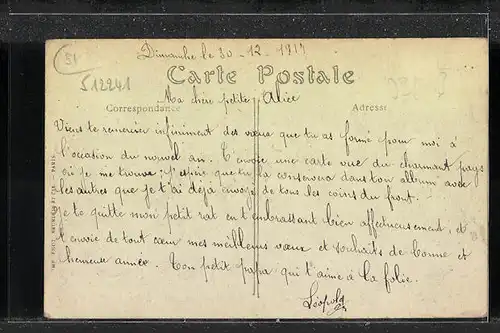 51
512241
Dimanche le 30 - 12 - 1917
Carte Postale
Ma chère petite Alice
Correspondance
Adresse
Viens te remercier infiniment des vœux que tu as formé pour moi à
l'occasion du nouvel an. T'envoie une carte vue du charmant pays
où je me trouve. J'espère que tu la conservera dans ton album avec
les autres que je t'ai déjà envoyé de tous les coins du front.
Je te quitte mon petit rat en t'embrassant bien affectueusement, et
t'envoie de tout cœur mes meilleurs vœux et souhaits de bonne et
heureuse année. Ton petit papa qui t'aime à la folie.
Léopold
PARIS